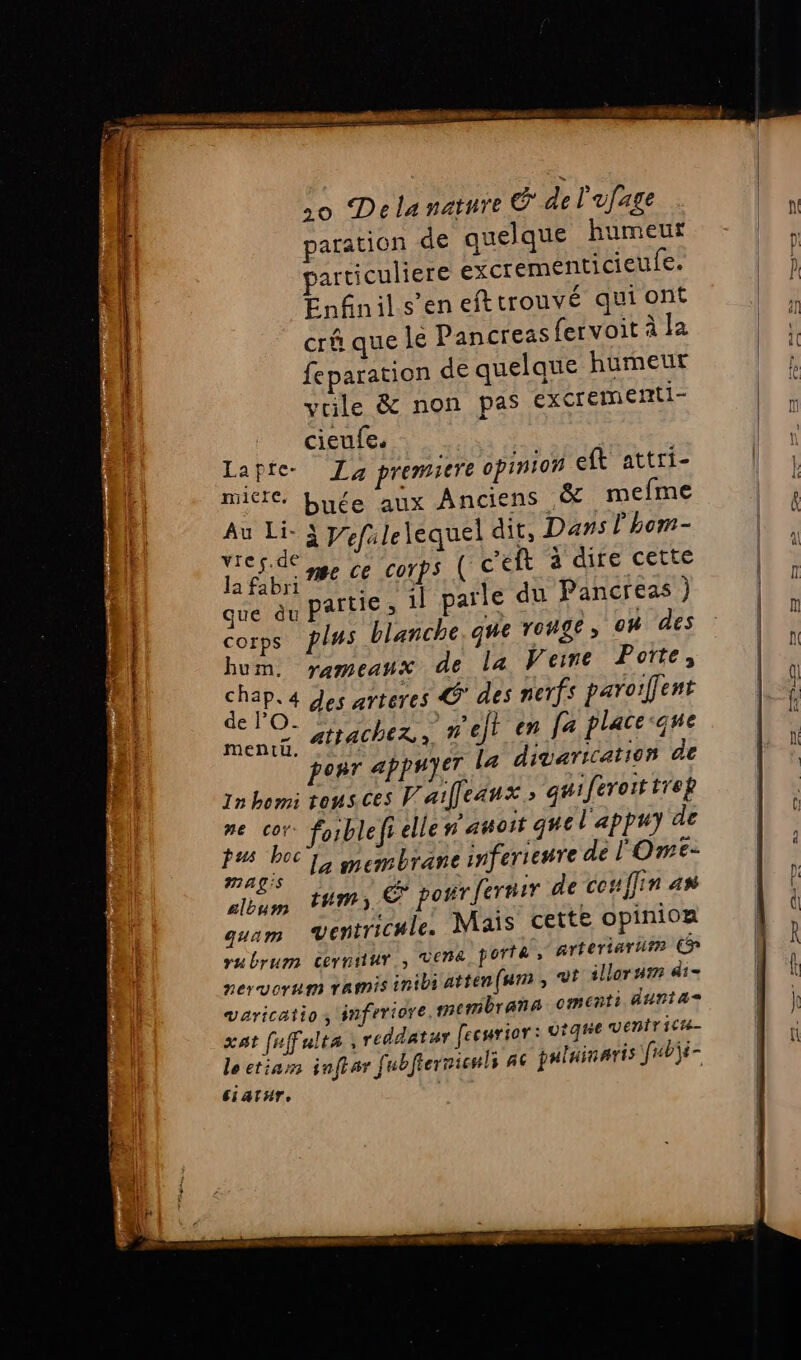 20 De la nature & de l'vsage
paration de quelque humeur
particuliere excrementicieuſe.
Enfin il s'en eſt trouvé qui ont
crû que le Pancreas ſervoit à la
ſeparation de quelque humeur
vtile & non pas excrementi-
cieuſe.
La premiere opinion eſt attri-
buée aux Anciens & meſme
à Veſale lequel dit, Dans l'hom-
me ce corps ( c'eſt à dire cette
partie, il parle du Pancreas )
plus blanche que rouge, où des
rameaux de la Veine Porte,
des arteres & des nerfs paroiſſent
attachez, n'eſt en ſa place que
pour appuyer la divarication de
tous ces Vaiſſeaux, qui ſeroit trop
foible ſi elle n'auoit que l'appuy de
la membrane inferieure de l'Ome-
tum, & pour ſeruir de couſſin au
ventricule. Mais cette opinion
La pre-
miere.
Au Li-
vre 5. de
la fabri
que du
corps
hum.
chap. 4
de l'O-
mentū.
In homi
ne cor-
pus hoc
magis
album
quam
rubrum cernitur, venæ portæ, arteriarūm &
nervorum ramis inibi attenſum, vt illorum di-
varicatio, inferiore membrana omenti dunta-
xat ſuffulta, reddatur ſecurior: vtque ventricu-
lo etiam inſtar ſubſterniculi ac puluinaris ſubji-
ciatur.